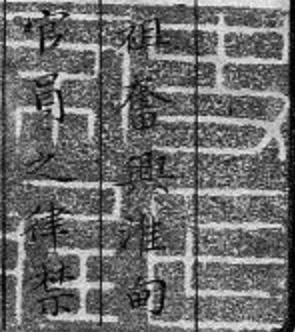 祖奮興淮甸
官員之律禁